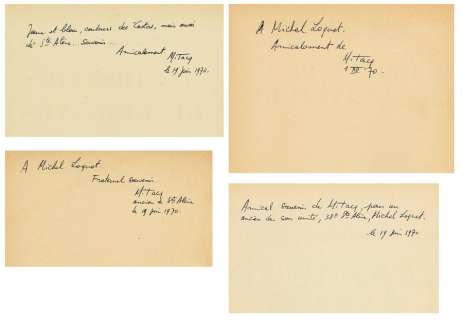 Jaune et bleu, couleurs des Castors, mais aussi
de Ste Alène. Souvenir.
Amicalement
MiTacq
le 19 juin 1970.
A Michel Loquet.
Amicalement de
MiTacq
70.
A Michel Loquet
Fraternel souvenir
MiTacq
ancien de Ste Alène
le 19 juin 1970.
Amical souvenir de MiTacq, pour un
ancien de son unité, Ste Alène, Michel Loquet.
le 19 juin 1970